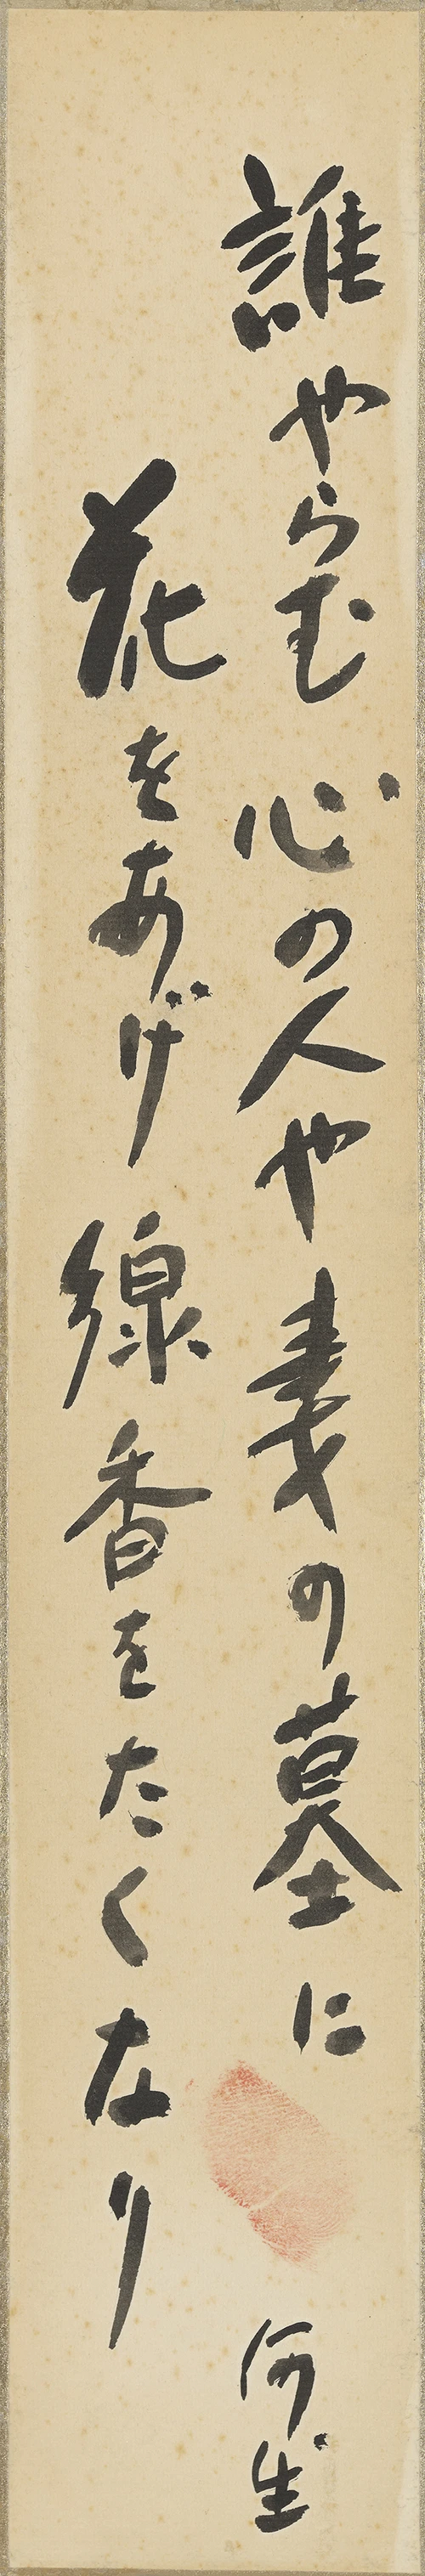 誰やらむ心の人や妻の墓に
花をあげ線香をたくなり
何生